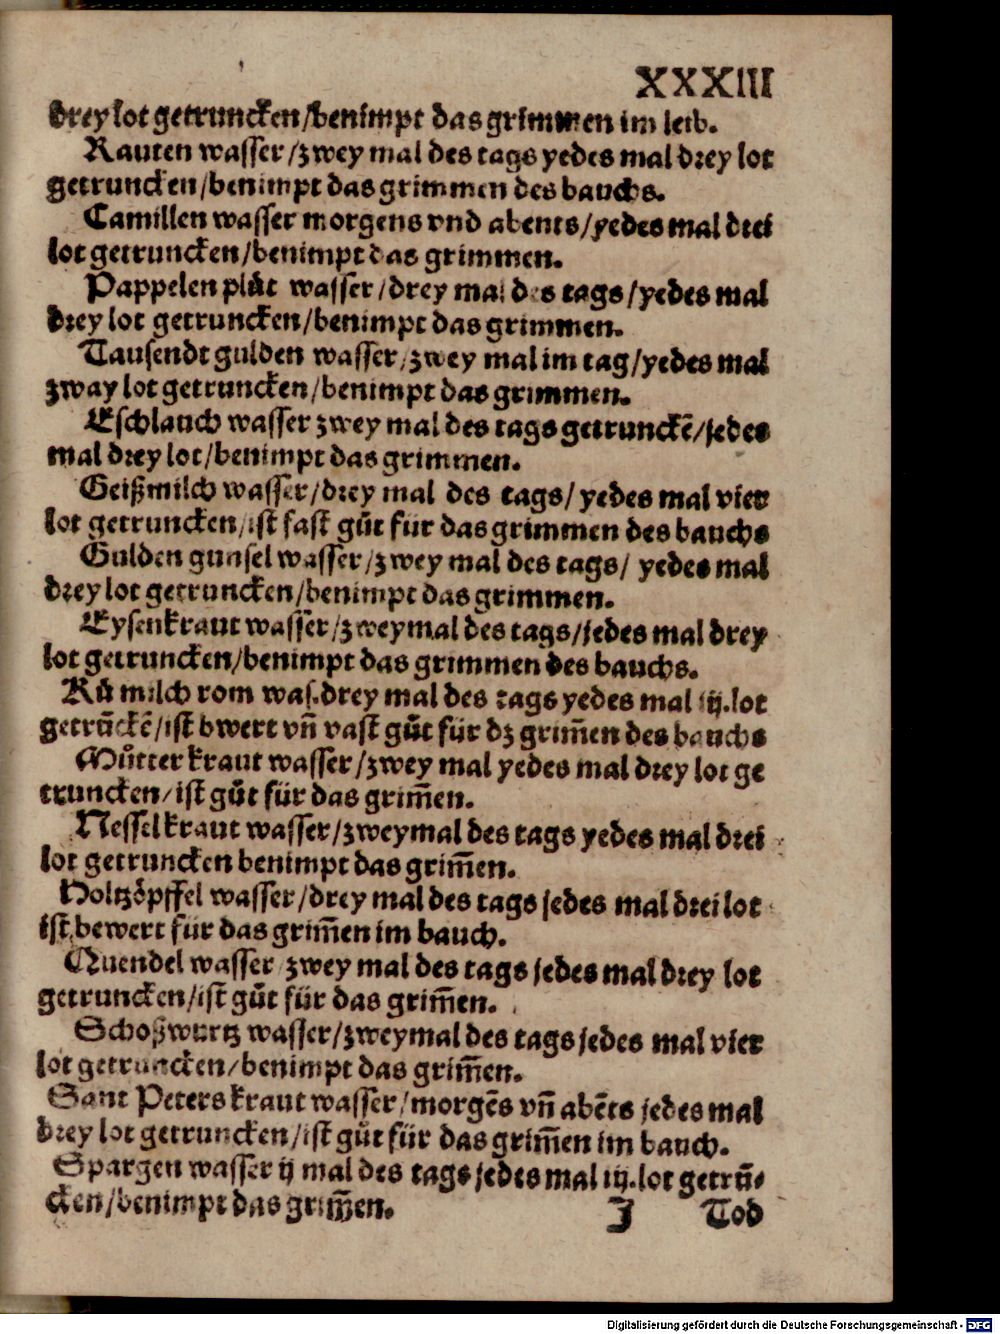 XXXIII
drey lot getruncken/benimpt das grimmen im leib.
Rauten wasser/zwey mal des tags yedes mal drey lot
getruncken/benimpt das grimmen des bauchs.
Camillen wasser morgens vnd abents/yedes mal drei
lot getruncken/benimpt das grimmen.
Pappelen plůt wasser/drey mal des tags/yedes mal
drey lot getruncken/benimpt das grimmen.
Tausendt gulden wasser/zwey mal im tag/yedes mal
zway lot getruncken/benimpt das grimmen.
Eschlauch wasser zwey mal des tags getrunckē/jedes
mal drey lot/benimpt das grimmen.
Geißmilch wasser/drey mal des tags/ yedes mal vier
lot getruncken/ist fast gůt für das grimmen des bauchs
Gulden gunsel wasser/zwey mal des tags/ yedes mal
drey lot getruncken/benimpt das grimmen.
Eysenkraut wasser/zweymal des tags/jedes mal drey
lot getruncken/benimpt das grimmen des bauchs.
Ků milch rom was.drey mal des tags yedes mal iij.lot
getrūckē/ist bwert vn̄ vast gůt für dz grim̄en des bauchs
Můtter kraut wasser/zwey mal yedes mal drey lot ge
truncken/ist gůt für das grim̄en.
Nessel kraut wasser/zweymal des tags yedes mal drei
lot getruncken benimpt das grim̄en.
Holtzöpffel wasser/drey mal des tags jedes mal drei lot
ist bewert für das grim̄en im bauch.
Quendel wasser zwey mal des tags jedes mal drey lot
getruncken/ist gůt für das grim̄en.
Schoßwurtz wasser/zweymal des tags jedes mal vier
lot getruncken/benimpt das grim̄en.
Sant Peters kraut wasser/morgēs vn̄ abēts jedes mal
drey lot getruncken/ist gůt für das grim̄en im bauch.
Spargen wasser ij mal des tags jedes mal iij.lot getrū⸗
cken/benimpt das grim̄en.
J Tod
Digitalisierung gefördert durch die Deutsche Forschungsgemeinschaft - DFG